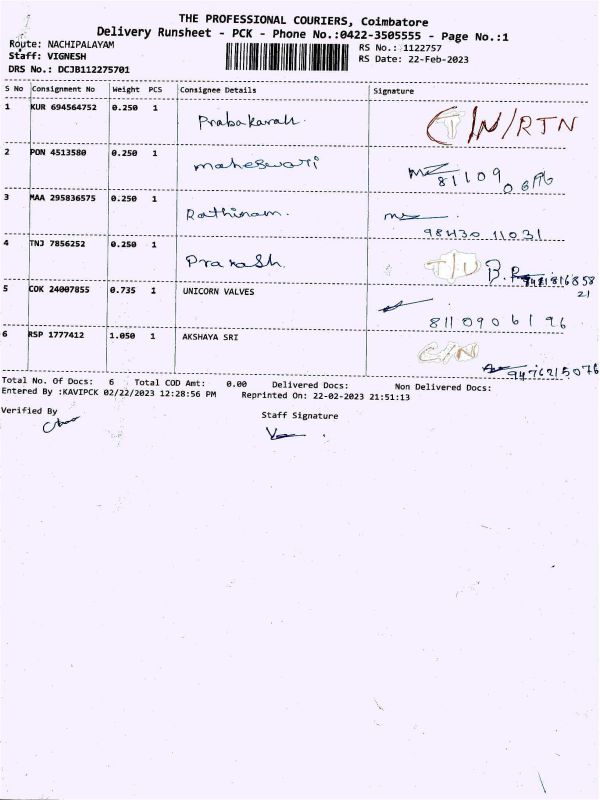 THE PROFESSIONAL COURIERS, Coimbatore
Delivery Runsheet - PCK - Phone No.:0422-3505555 - Page No.:1
Route: NACHIPALAYAM RS No.: 1122757
Staff: VIGNESH RS Date: 22-Feb-2023
DRS No.: DCJB112275701
S No Consignment No Weight PCS Consignee Details Signature
1 KUR 694564752 0.250 1 Prabakaran. /N/RTN
2 PON 4513580 0.250 1 maheswari 81109
3 MAA 295836575 0.250 1 Rathinam. 98430 11031
4 TNJ 7856252 0.250 1 Prakash.
5 COK 24007855 0.735 1 UNICORN VALVES 8110906196
6 RSP 1777412 1.050 1 AKSHAYA SRI C/N
Total No. Of Docs: 6 Total COD Amt: 0.00 Delivered Docs: Non Delivered Docs:
Entered By :KAVIPCK 02/22/2023 12:28:56 PM Reprinted On: 22-02-2023 21:51:13
Verified By Staff Signature